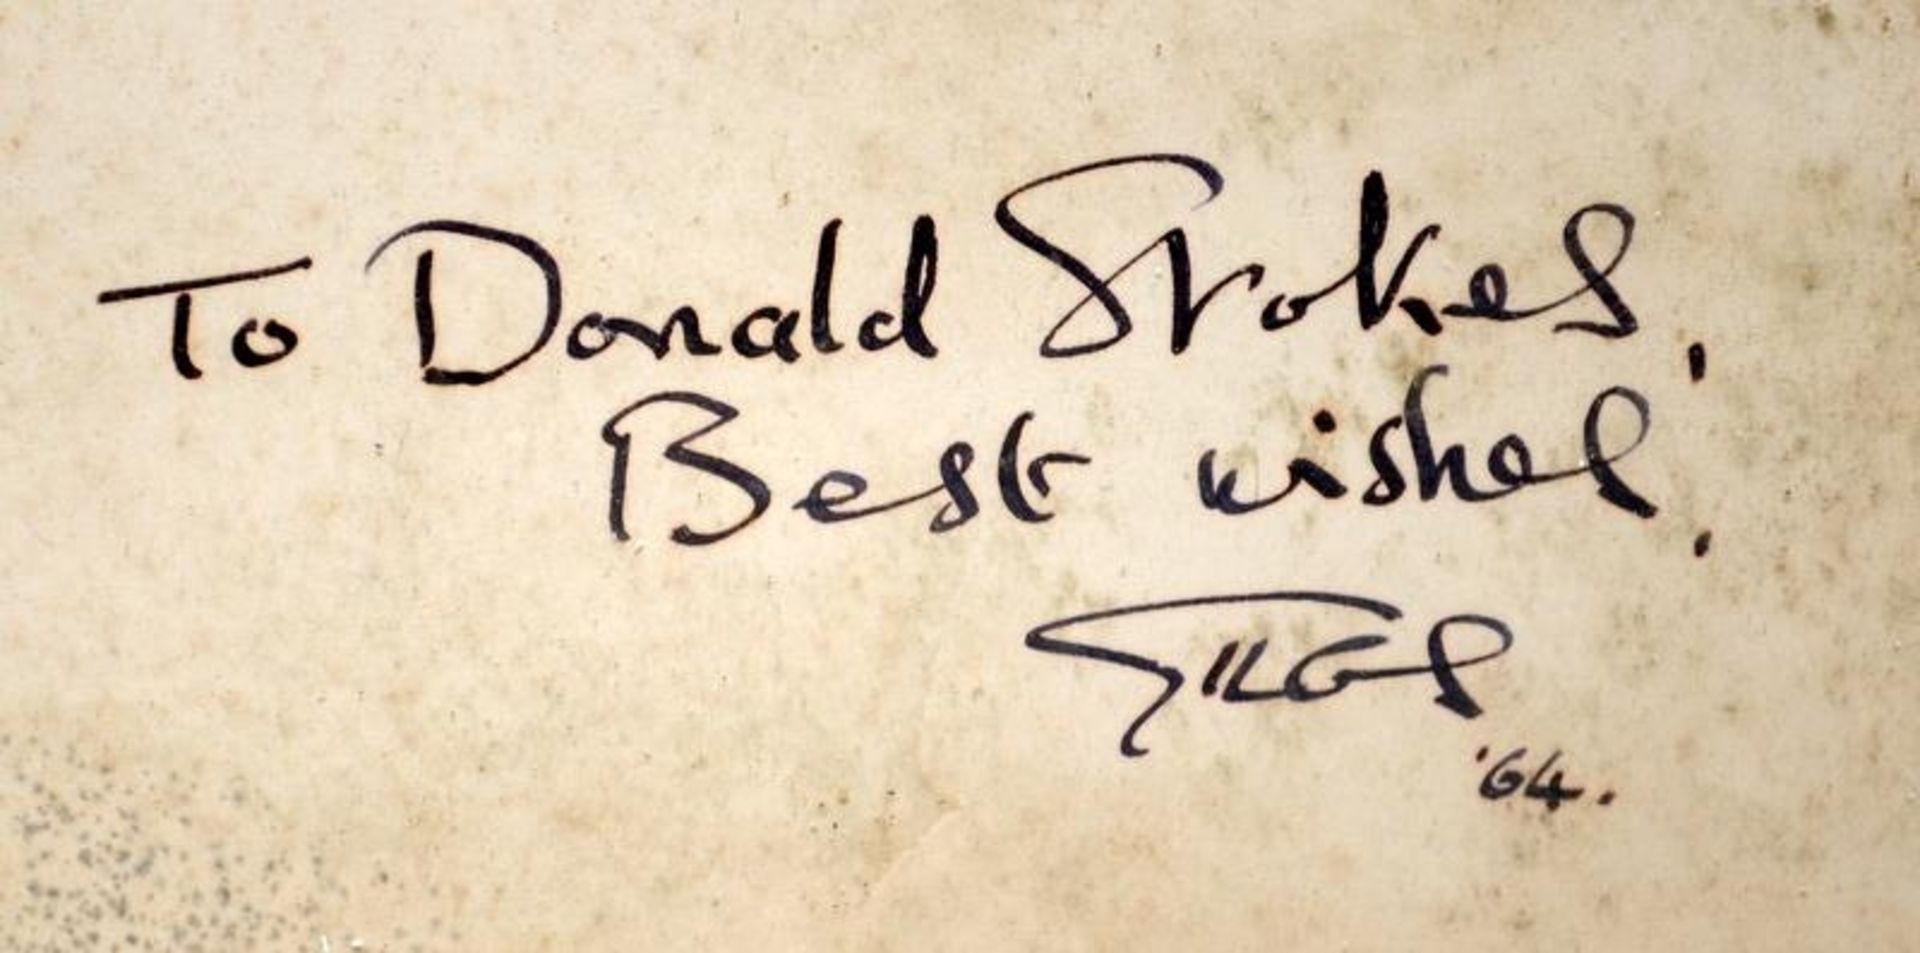 To Donald Stokes,
Best wishes.
GILES
'64.